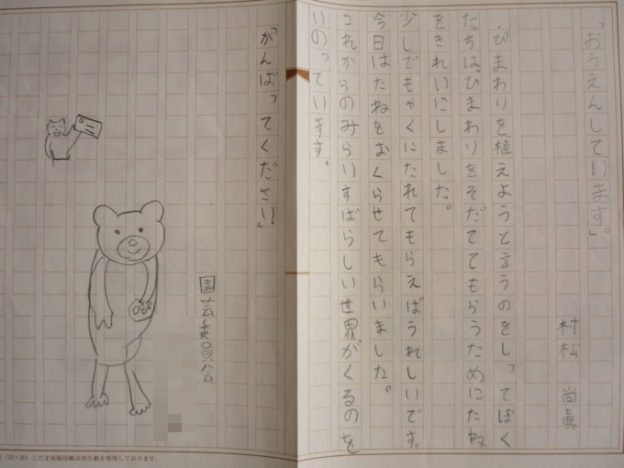 「おうえんしています。」
村松 尚眞
ひまわりを植えようと言うのをしってぼく
たちは、ひまわりをそだててもらうためにたね
をきれいにしました。
少しでもやくにたれてもらえばうれしいです。
今日はたねをおくらせてもらいました。
これからのみらいすばらしい世界がくるのを
いのっています。
「がんばってください」
園芸委員会
(20×20) こだま原稿用紙は再生紙を使用しております。